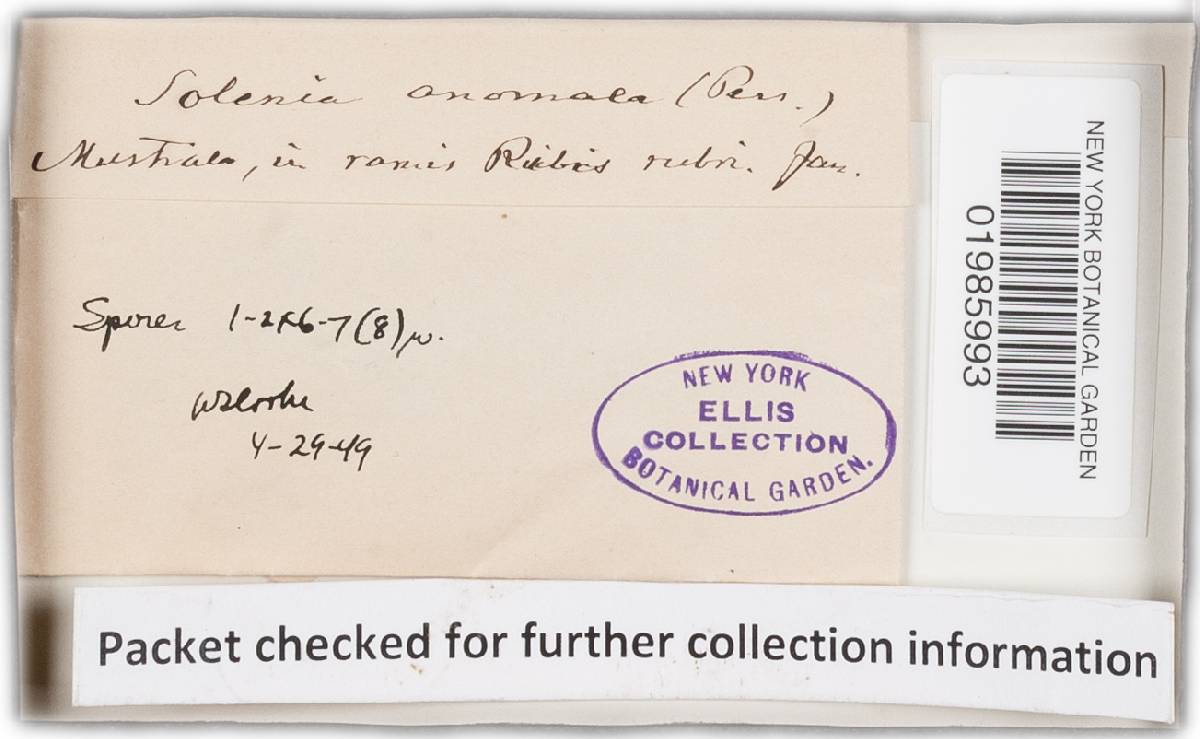 Solenia anomala (Pers.)
Mustiala, in ramis Ribis rubri. Jan.
Spores 1-2 x 6-7 (8) μ.
WBCooke
4-29-49
NEW YORK
ELLIS
COLLECTION
BOTANICAL GARDEN.
NEW YORK BOTANICAL GARDEN
01985993
Packet checked for further collection information